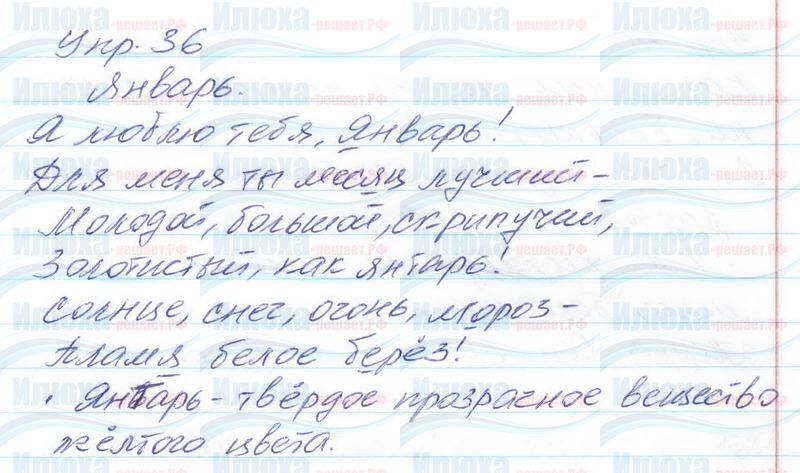 Упр. 36
Январь.
Я люблю тебя, Январь!
Для меня ты месяц лучший –
Молодой, большой, скрипучий,
Золотистый, как янтарь!
Солнце, снег, огонь, мороз –
Пламя белое берёз!
· Янтарь – твёрдое прозрачное вещество
жёлтого цвета.